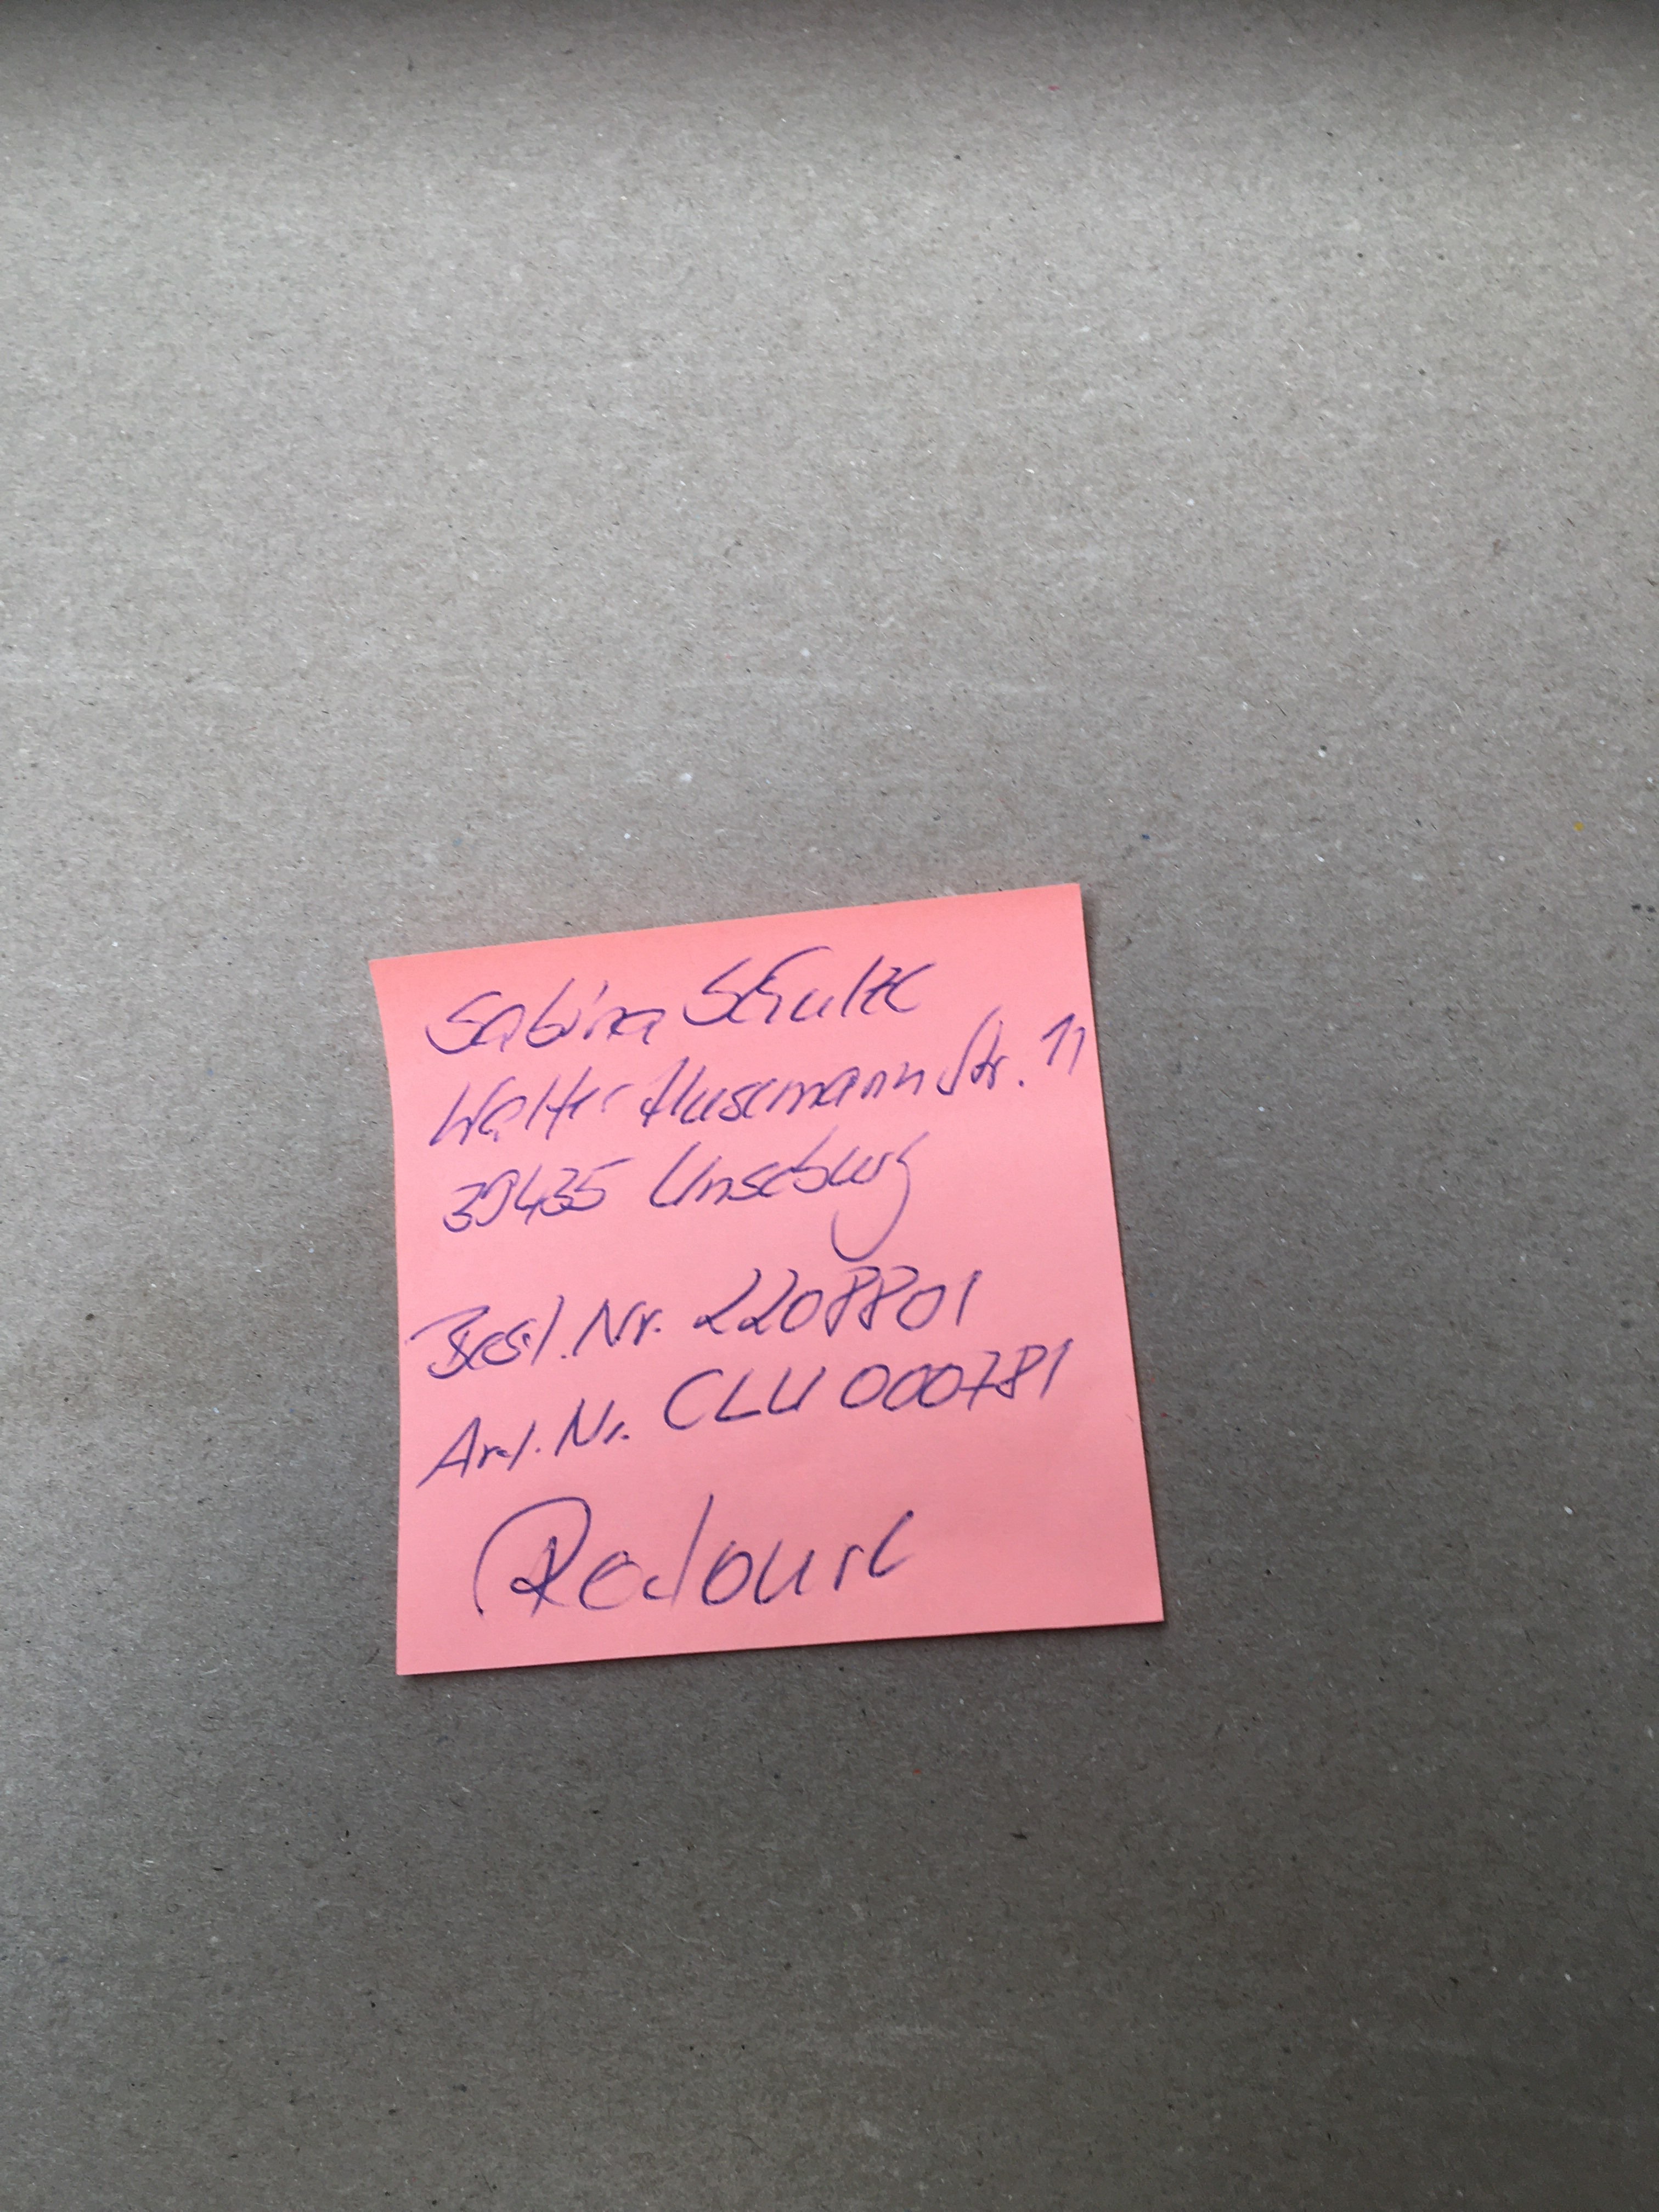 Sabina Schulze
Walter Husemann Str. 11
39435 Unseburg
Best.Nr. 2208801
Art.Nr. CLU 000781
Retoure